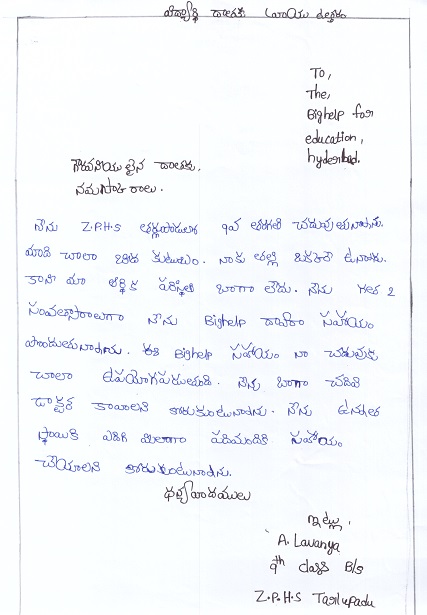 విద్యార్థి దాతకు రాయు ఉత్తరం
To,
The,
Bighelp for
education,
hyderabad.
గౌరవనీయులైన దాతకు,
నమస్కారాలు.
నేను Z.P.H.S తర్లుపాడులో 9వ తరగతి చదువుతున్నాను.
మాది చాలా బీద కుటుంబం. నాకు తల్లి ఒకతే ఉన్నారు.
కాని మా ఆర్థిక పరిస్థితి బాగా లేదు. నేను గత 2
సంవత్సరాలుగా నేను Bighelp ద్వారా సహాయం
పొందుతున్నాను. ఈ Bighelp సహాయం నా చదువుకు
చాలా ఉపయోగపడుతుంది. నేను బాగా చదివి
డాక్టర్ కావాలని కోరుకుంటున్నాను. నేను ఉన్నత
స్థాయికి ఎదిగి మీలాగా పదిమందికి సహాయం
చేయాలని కోరుకుంటున్నాను.
ధన్యవాదములు
ఇట్లు,
A. Lavanya
9th class B/S
Z.P.H.S Tarlupadu